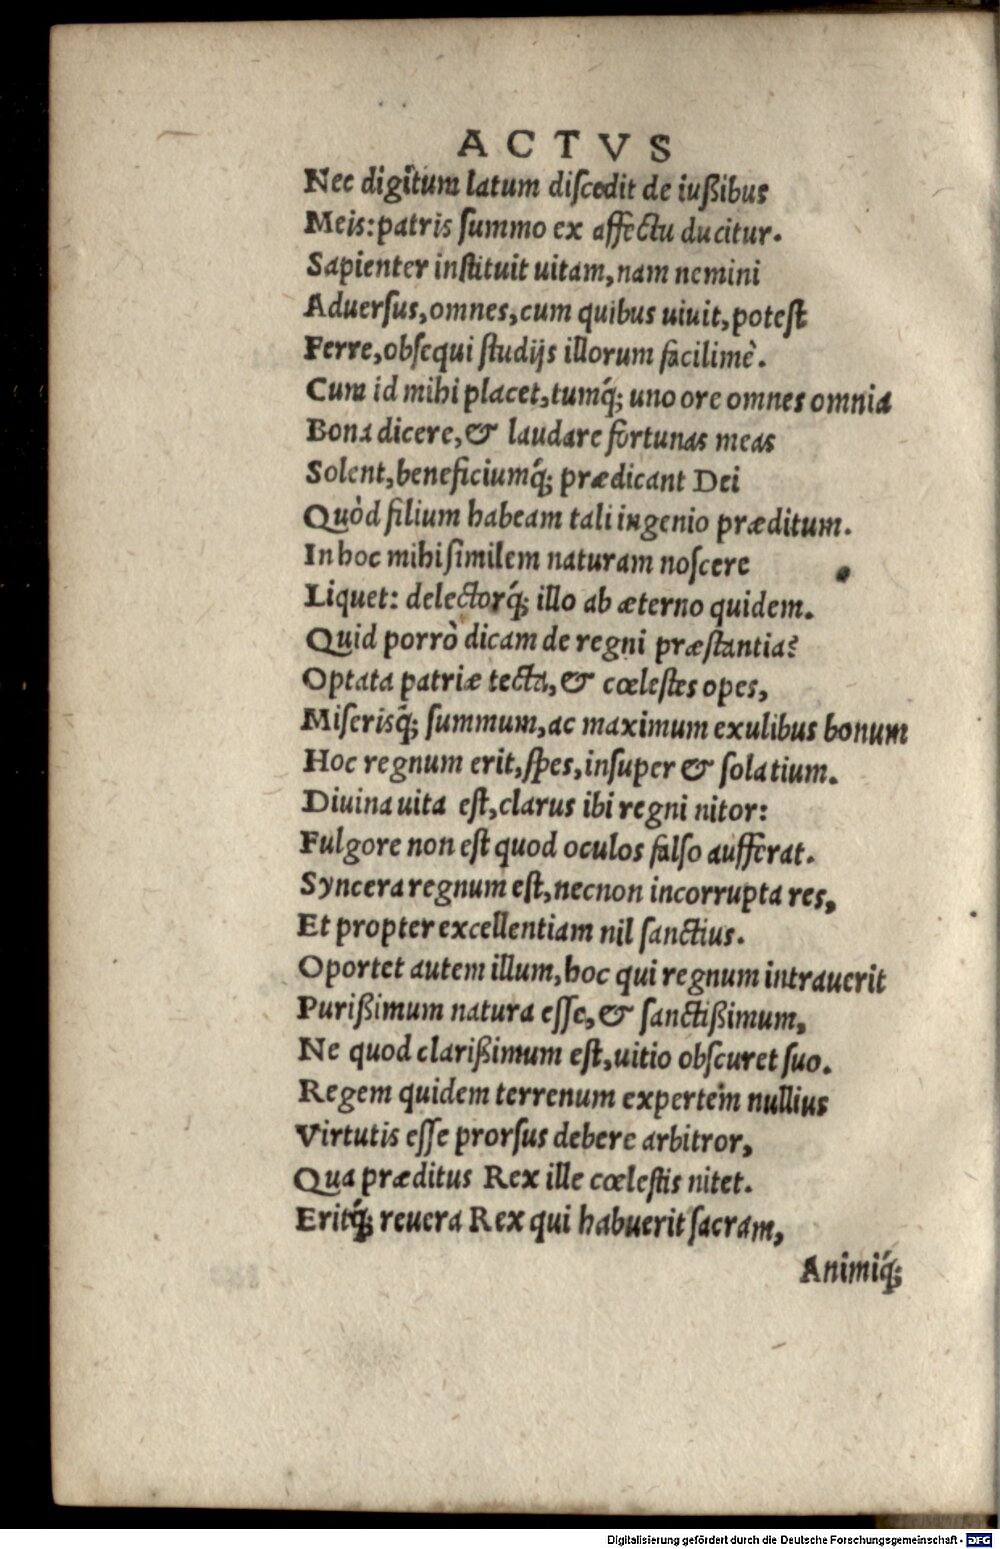 ACTVS
Nec digitum latum diſcedit de iußibus
Meis:patris ſummo ex affectu ducitur.
Sapienter inſtituit uitam,nam nemini
Aduerſus,omnes,cum quibus uiuit,poteſt
Ferre,obſequi ſtudijs illorum facilimè.
Cum id mihi placet,tumq́; uno ore omnes omnia
Bona dicere,& laudare fortunas meas
Solent,beneficiumq́; prædicant Dei
Quòd filium habeam tali ingenio præditum.
In hoc mihi ſimilem naturam noſcere
Liquet: delectorq́; illo ab æterno quidem.
Quid porrò dicam de regni præſtantia?
Optata patriæ tecta,& cœleſtes opes,
Miſerisq́; ſummum,ac maximum exulibus bonum
Hoc regnum erit,ſpes,inſuper & ſolatium.
Diuina uita eſt,clarus ibi regni nitor:
Fulgore non eſt quod oculos falſo aufferat.
Syncera regnum eſt,necnon incorrupta res,
Et propter excellentiam nil ſanctius.
Oportet autem illum,hoc qui regnum intrauerit
Purißimum natura eſſe,& ſanctißimum,
Ne quod clarißimum eſt,uitio obſcuret ſuo.
Regem quidem terrenum expertem nullius
Virtutis eſſe prorſus debere arbitror,
Qua præditus Rex ille cœleſtis nitet.
Eritq́; reuera Rex qui habuerit ſacram,
Animiq́;
Digitalisierung gefördert durch die Deutsche Forschungsgemeinschaft - DFG